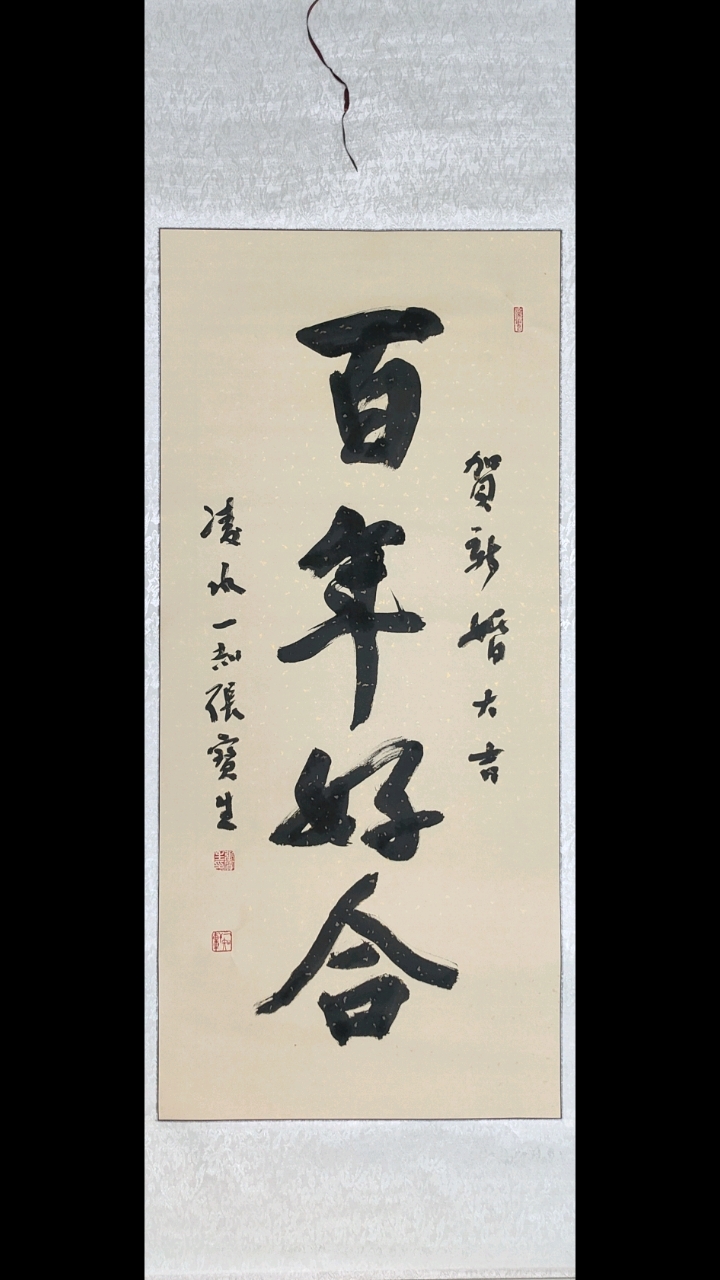 賀新婚大吉
百年好合
凌水一知張寶生